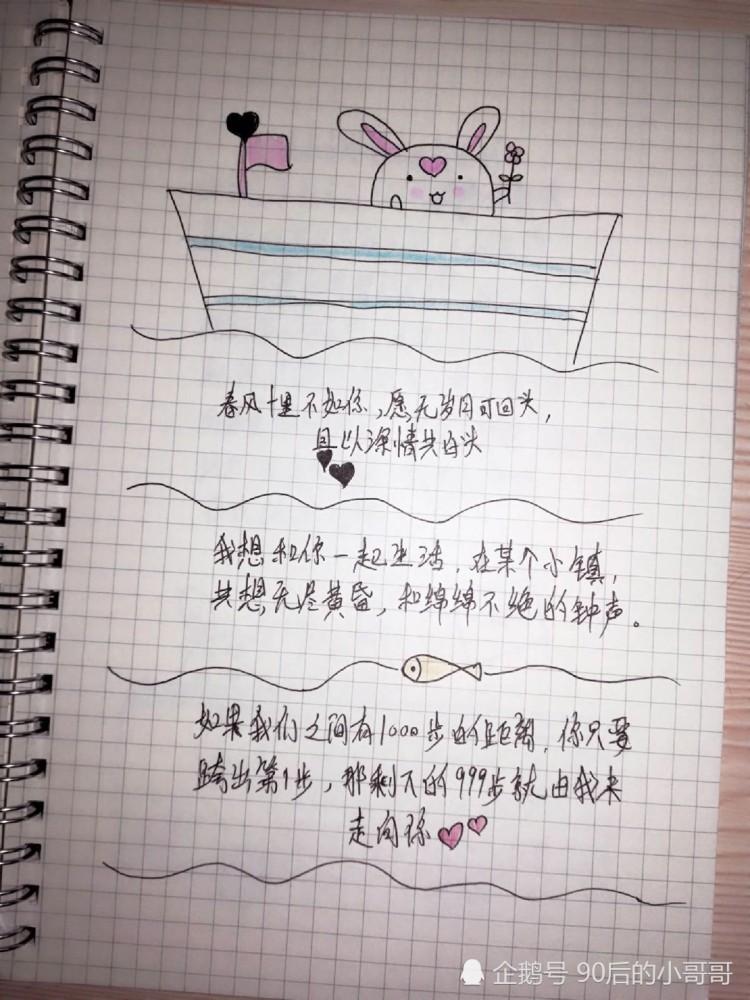 春风十里不如你，愿无岁月可回头，
且以深情共白头
我想和你一起生活，在某个小镇，
共想无尽黄昏，和绵绵不绝的钟声。
如果我们之间有1000步的距离，你只要
跨出第1步，那剩下的999步就由我来
走向你
企鹅号 90后的小哥哥